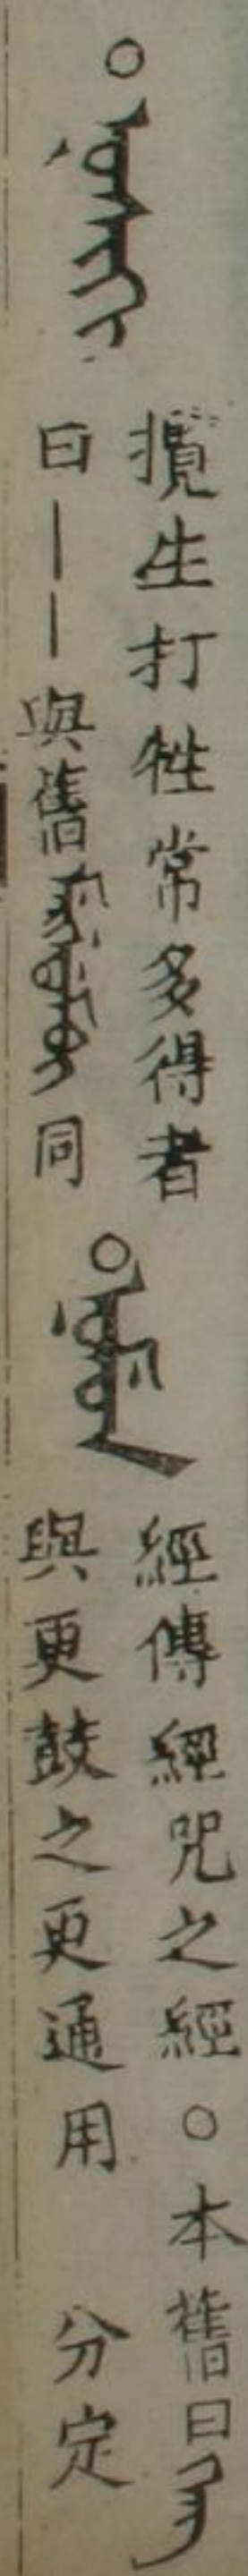 ○
生打牲常多得者
曰——與舊 同
○ ᠨᠣᠮᡠᠨ
經傳經咒之經○本舊曰
與更鼓之更通用 分定